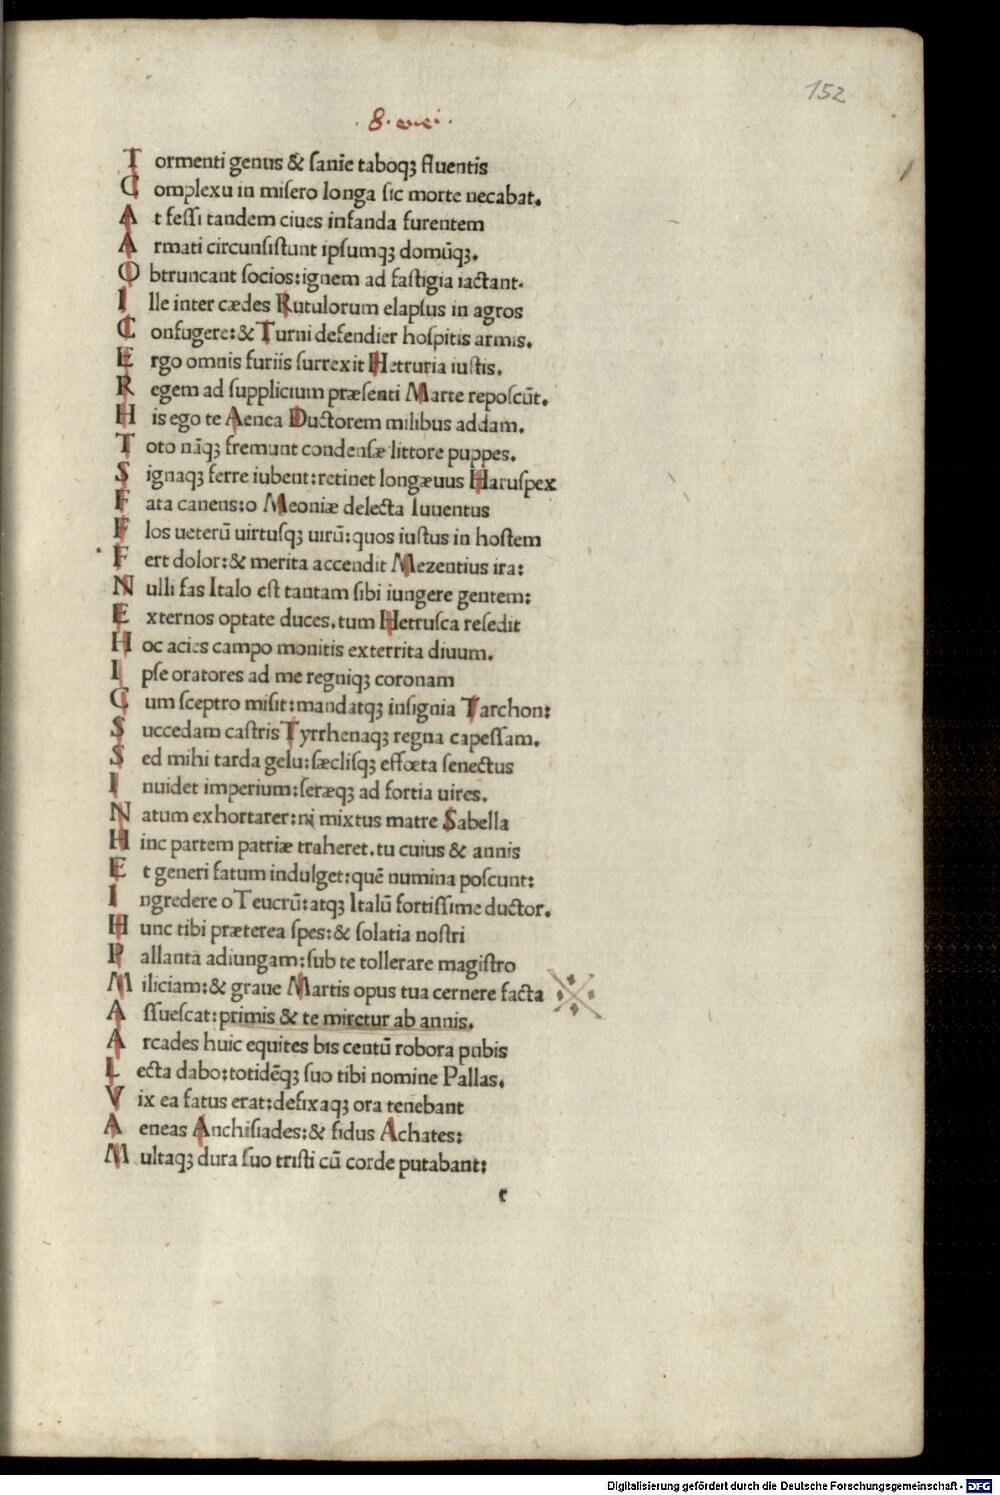 152
·8·
T ormenti genus & ſanīe taboqꝫ fluentīs
C omplexu in miſero longa ſic morte necabat.
A t feſſi tandem ciues infanda furentem
A rmati circunſiſtunt ipſumqꝫ domūqꝫ.
O btruncant ſocios:ignem ad faſtigia iactant·
I lle inter cædes Rutulorum elapſus in agros
C onfugere:& Turni defendier hoſpitis armis.
E rgo omnis furiis ſurrexit Hetruria iuſtis.
R egem ad ſupplicium præſenti Marte repoſcūt.
H is ego te Aenea Ductorem milibus addam.
T oto nāqꝫ fremunt condenſæ littore puppes.
S ignaqꝫ ferre iubent:retinet longæuus Haruſpex
F ata canens:o Meoniæ delecta Iuuentus
F los ueterū uirtuſqꝫ uirū:quos iuſtus in hoſtem
F ert dolor:& merita accendit Mezentius ira:
N ulli fas Italo eſt tantam ſibi iungere gentem:
E xternos optate duces.tum Hetruſca reſedit
H oc acies campo monitis exterrita diuum.
I pſe oratores ad me regniqꝫ coronam
C um ſceptro miſit:mandatqꝫ inſignia Tarchon:
S uccedam caſtris Tyrrhenaqꝫ regna capeſſam.
S ed mihi tarda gelu:ſæcliſqꝫ effœta ſenectus
I nuidet imperium:ſeræqꝫ ad fortia uires.
N atum exhortarer:ni mixtus matre Sabella
H inc partem patriæ traheret.tu cuius & annis
E t generi fatum indulget:quē numina poſcunt:
I ngredere o Teucrū:atqꝫ Italū fortiſſime ductor.
H unc tibi præterea ſpes:& ſolatia noſtri
P allanta adiungam:ſub te tollerare magiſtro
M iliciam:& graue Martis opus tua cernere facta
A ſſueſcat:primis & te miretur ab annis.
A rcades huic equites bis centū robora pubis
L ecta dabo:totidēqꝫ ſuo tibi nomine Pallas.
V ix ea fatus erat:defixaqꝫ ora tenebant
A eneas Anchiſiades:& fidus Achates:
M ultaqꝫ dura ſuo triſti cū corde putabant:
Digitalisierung gefördert durch die Deutsche Forschungsgemeinschaft - DFG